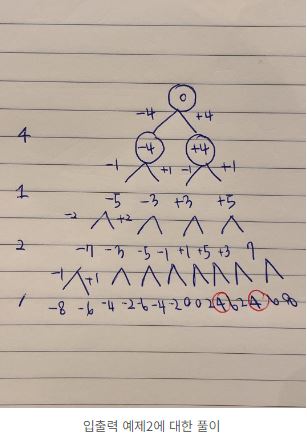 0
-4 +4
4 -4 +4
-1 +1 -1 +1
1 -5 -3 +3 +5
-2 +2
2 -7 -3 -5 -1 +1 +5 +3 7
-1 +1
1 -8 -6 -4 -2 -6 -4 -2 0 0 2 4 6 2 4 6 8
입출력 예제2에 대한 풀이